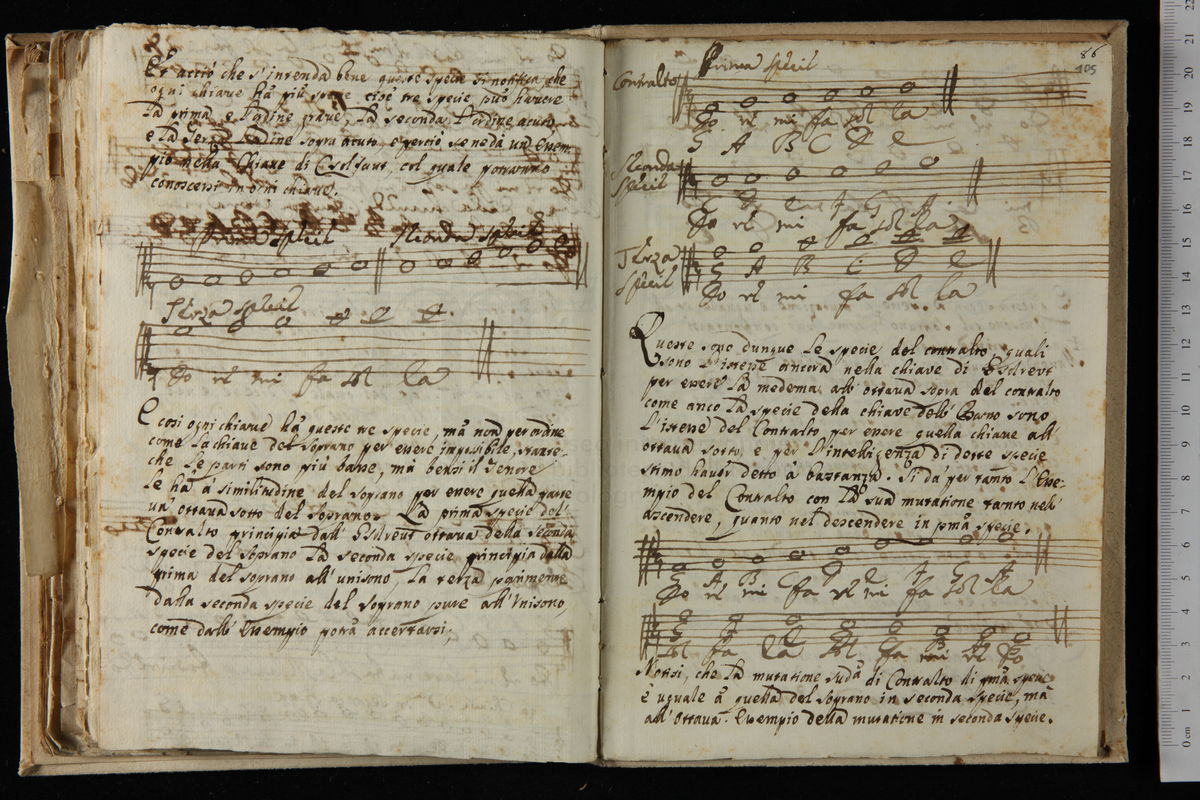 Et acciò che s'intenda bene queste specie si notifica che
ogni chiave hà più sorte cioè tre specie può havere
La prima è l'ordine grave, La seconda l'ordine acuto,
e la Terza l'ordine sopra acuto e perciò se ne dà un Esem-
pio nella Chiave di Csolfaut, col quale potranno
conoscersi in ogni chiave.
Prima Specie Seconda Specie
Terza Specie
Do re mi fa sol la
E così ogni chiave hà queste tre specie, mà non per ordine
come la chiave del soprano per essere impossibile, stante-
che le parti sono più basse, mà bensì il Tenore
le hà à similitudine del soprano per essere quella parte
un'ottava sotto del soprano. La prima specie del
Contralto principia dall' Gsolreut ottava della seconda
specie del soprano La seconda specie principia dalla
prima del soprano all'unisono, La terza parimente
dalla seconda specie del soprano pure all'Unisono,
come dall'Essempio potrà accertarsi,
86
105
Prima specie
Contralto
Do re mi fa sol la
G A B C D E
Seconda
Specie
C D E F G A
Do re mi fa sol la
Terza
Specie
G A B C D E
Do re mi fa sol la
Queste sono dunque le specie del contralto, quali
sono l'istesse ancora nella chiave di Gsolreut
per essere la medema all'ottava sopra del contralto
come anco la specie della chiave dell' Basso sono
l'istesse del Contralto per essere quella chiave all'
ottava sotto, e per l'intelligenza di dette specie
stimo haver detto à bastanza. Si dà per tanto l'Esse-
mpio del Contralto con la sua mutatione tanto nell'
ascendere, quanto nel descendere in pma specie.
G A B C D E F G A
Do re mi fa re mi fa sol la
sol fa la sol fa mi re Do
Notisi, che la mutatione sudª di Contralto di pmª specie
è uguale à quella del soprano in seconda specie, mà
all'ottava. Essempio della mutatione in seconda specie.